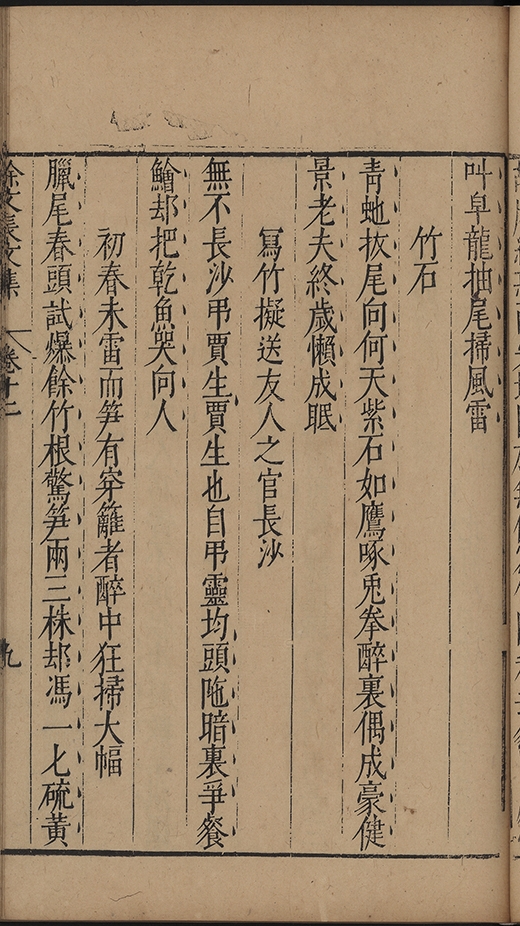 叫皁龍抽尾掃風雷
竹石
靑虵拔尾向何天紫石如鷹啄兎拳醉裏偶成豪健
景老夫終歲懶成眠
冩竹擬送友人之官長沙
無不長沙弔賈生賈生也自弔靈均頭陁暗裏爭餐
鱠却把乾魚哭向人
初春未雷而笋有穿籬者醉中狂掃大幅
臘尾春頭試爆餘竹根驚笋兩三株却馮一七硫黃
徐文長文集 卷十二 九